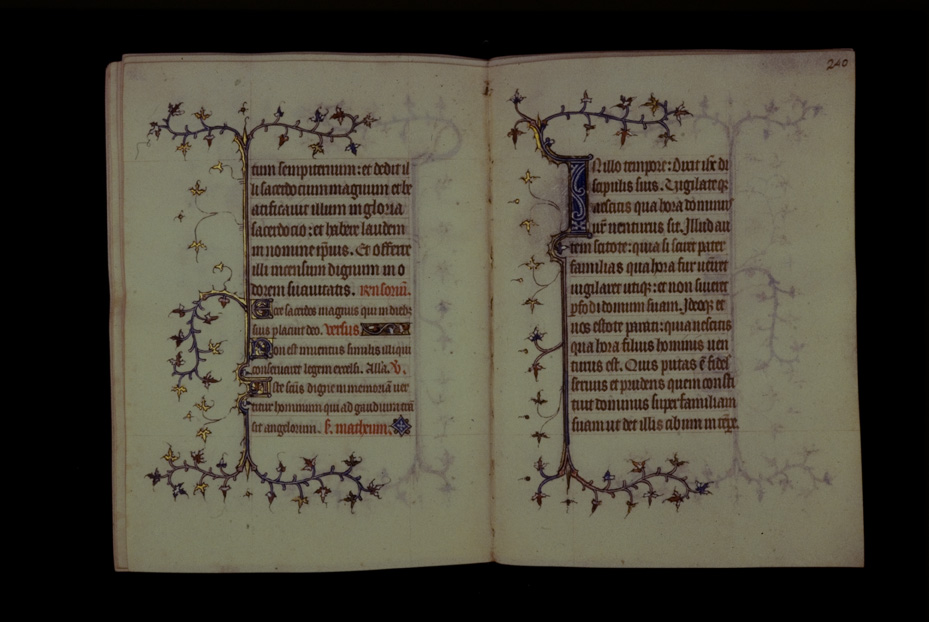 tum sempiternum: et dedit il
li sacerdotium magnum et be
atificauit illum in gloria
sacerdotio: et habere laudem
in nomine ip̄ius. Et offerre
illi incensum dignum in o
dorem suauitatis. Rensoriū.
Ecce sacerdos magnus qui in dieb;
suis placuit deo. versus
Non est inuentus similis illi qui
conseruaret legem excelsi. Alla. v̄.
Iste sc̄us digne in memoriā uer
titur hominum qui ad gaudium trā
sit angelorum. s. matheum.
240
IN illo tempore: Dixit ih̄c di
scipulis suis. Uigilate q;
nescitis qua hora dominus
ur̄ uenturus sit. Illud au
tem scitote: quia si sciret pater
familias qua hora fur ueniret
uigilaret utiq; et non sineret
pfodi domum suam. Ideoq; et
uos estote parati: quia nescitis
qua hora filius hominis uen
turus est. Quis putas ē fidel
seruus et prudens quem consti
tuit dominus super familiam
suam ut det illis cibum in tēpe.